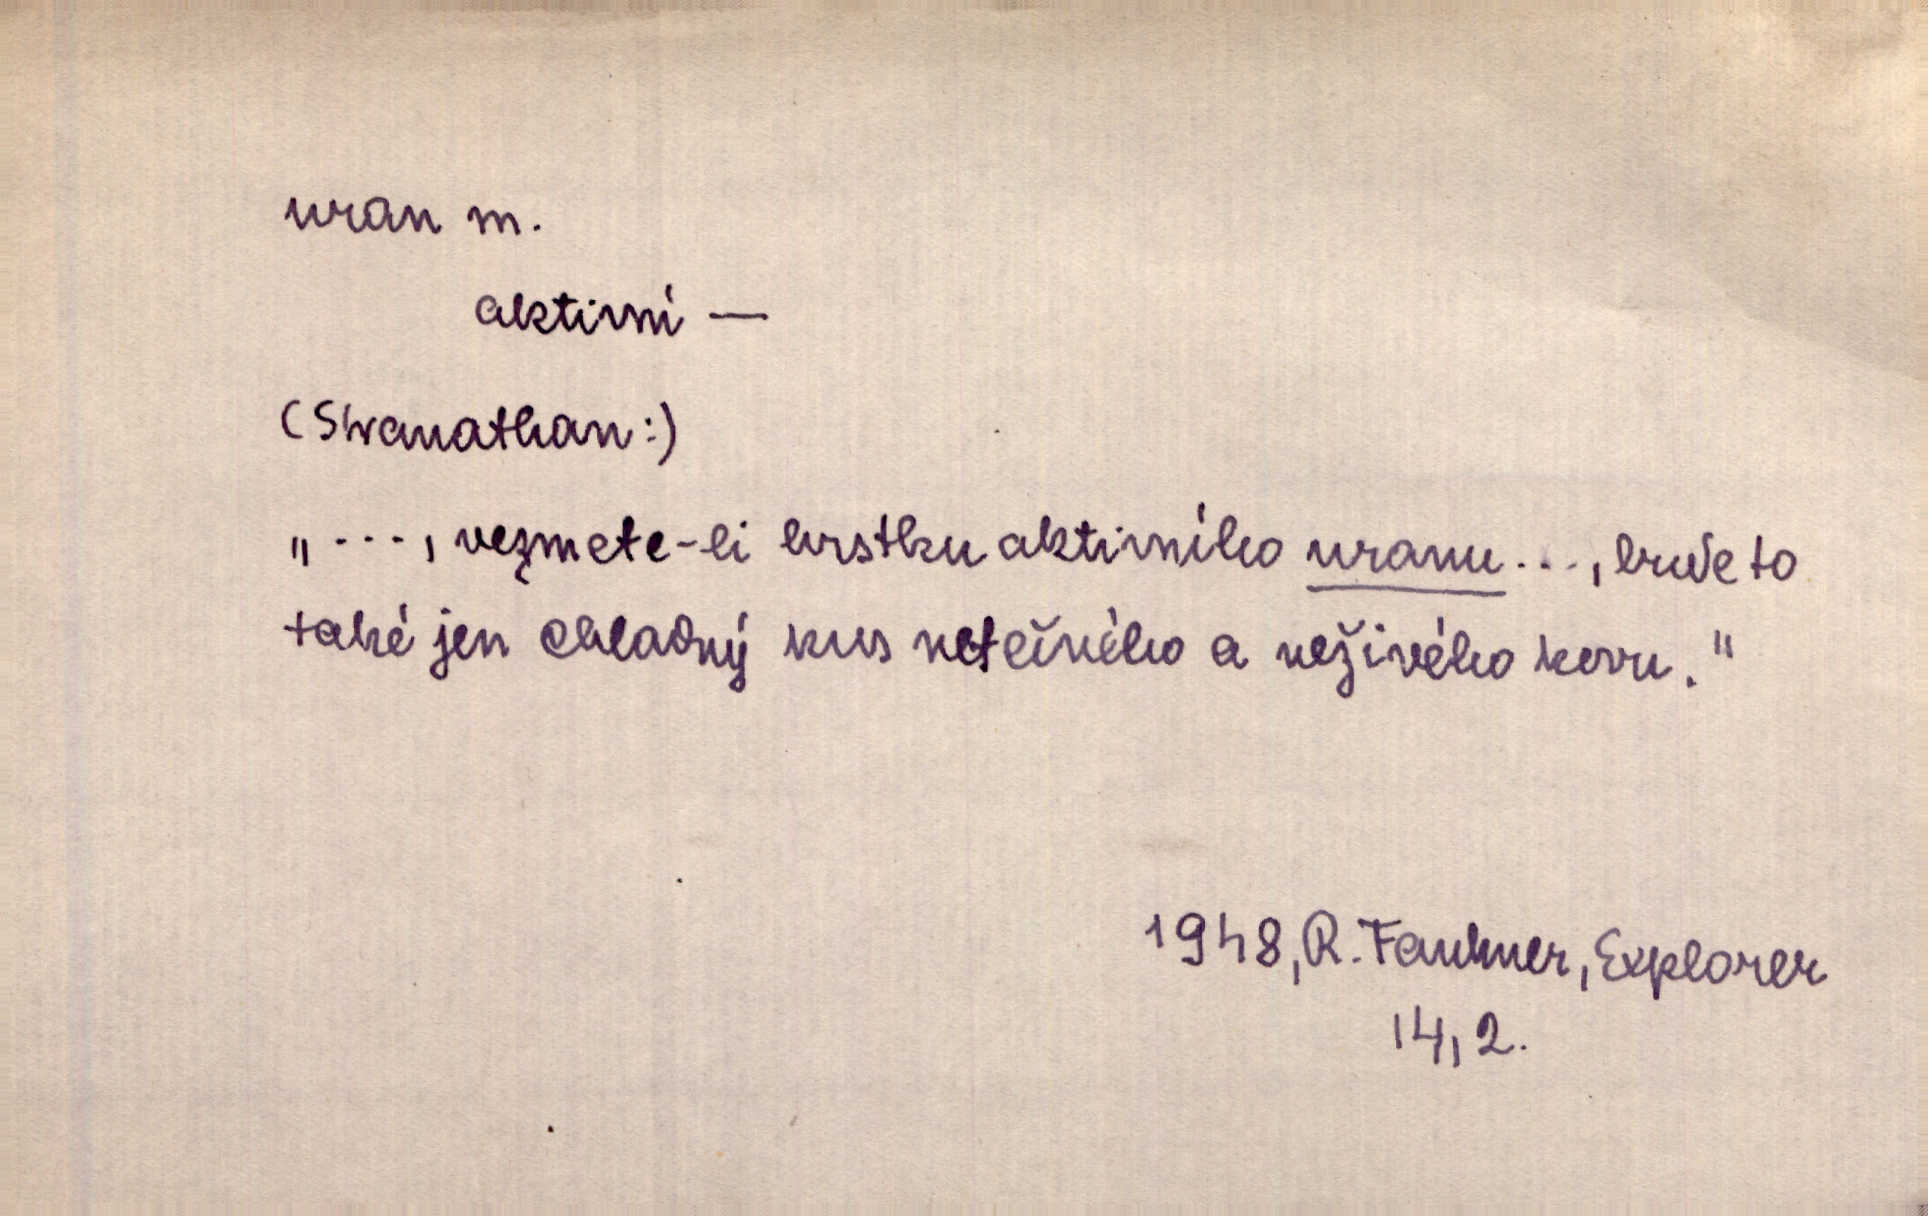 uran m.
aktivní —
(Swanathan:)
„..., vezmete-li hrstku aktivního uranu..., bude to
také jen chladný kus netečného a neživého kovu."
1948, R. Faukner, Explorer
14, 2.